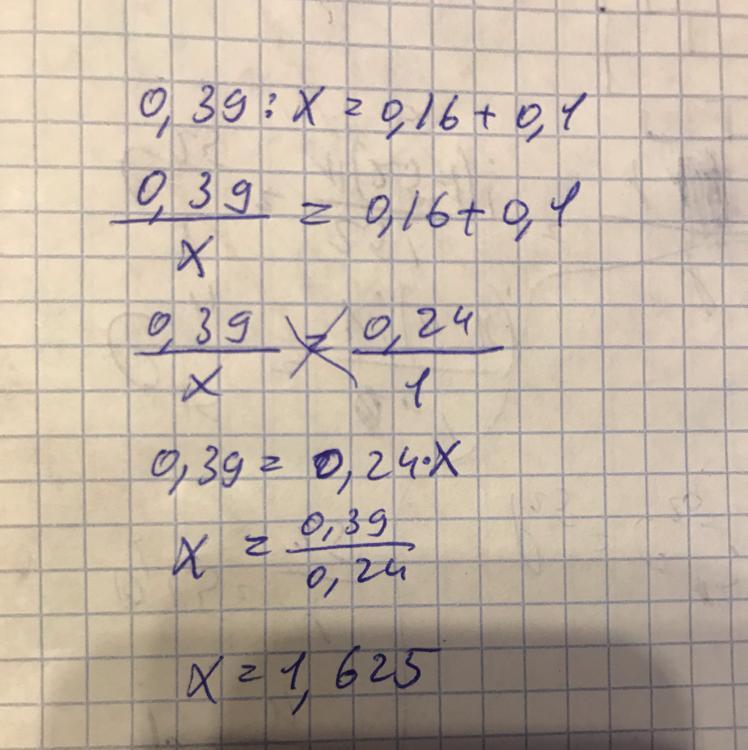 0,39 : x = 0,16 + 0,1
0,39/x = 0,16 + 0,1
0,39/x = 0,24/1
0,39 = 0,24·x
x = 0,39/0,24
x = 1,625